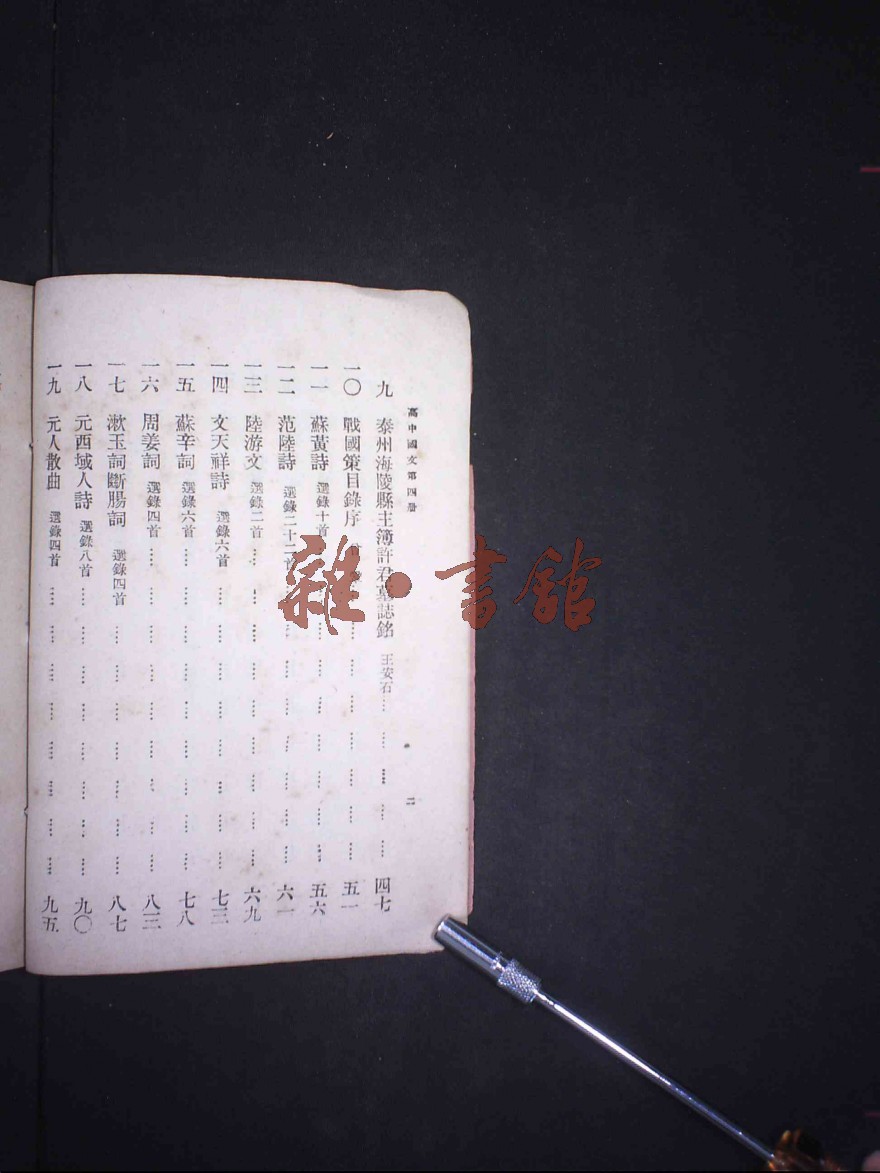 高中國文第四册
二
九 泰州海陵縣主簿許君墓誌銘 王安石 四七
一〇 戰國策目錄序 五一
一一 蘇黃詩 選錄十首 五六
一二 范陸詩 選錄二十二首 六一
一三 陸游文 選錄二首 六九
一四 文天祥詩 選錄六首 七三
一五 蘇辛詞 選錄六首 七八
一六 周姜詞 選錄四首 八三
一七 漱玉詞斷腸詞 選錄四首 八七
一八 元西域人詩 選錄八首 九〇
一九 元人散曲 選錄四首 九五
雜·書館